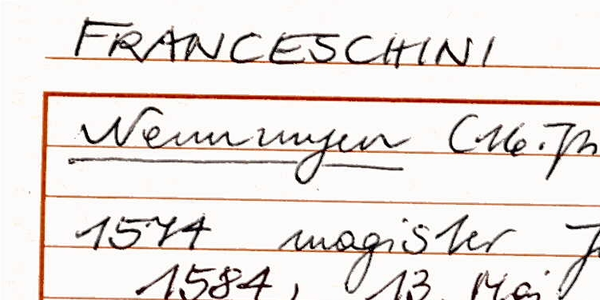 FRANCESCHINI
Nennungen (16. Jh
1574 magister J
1584, 13. Mai